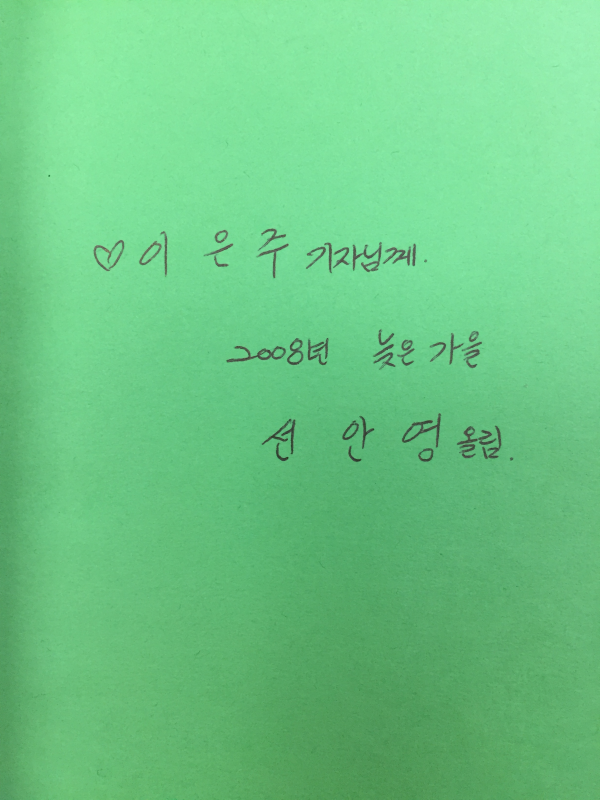 ♡이 은 주 기자님께.
2008년 늦은 가을
선 안 영 올림.